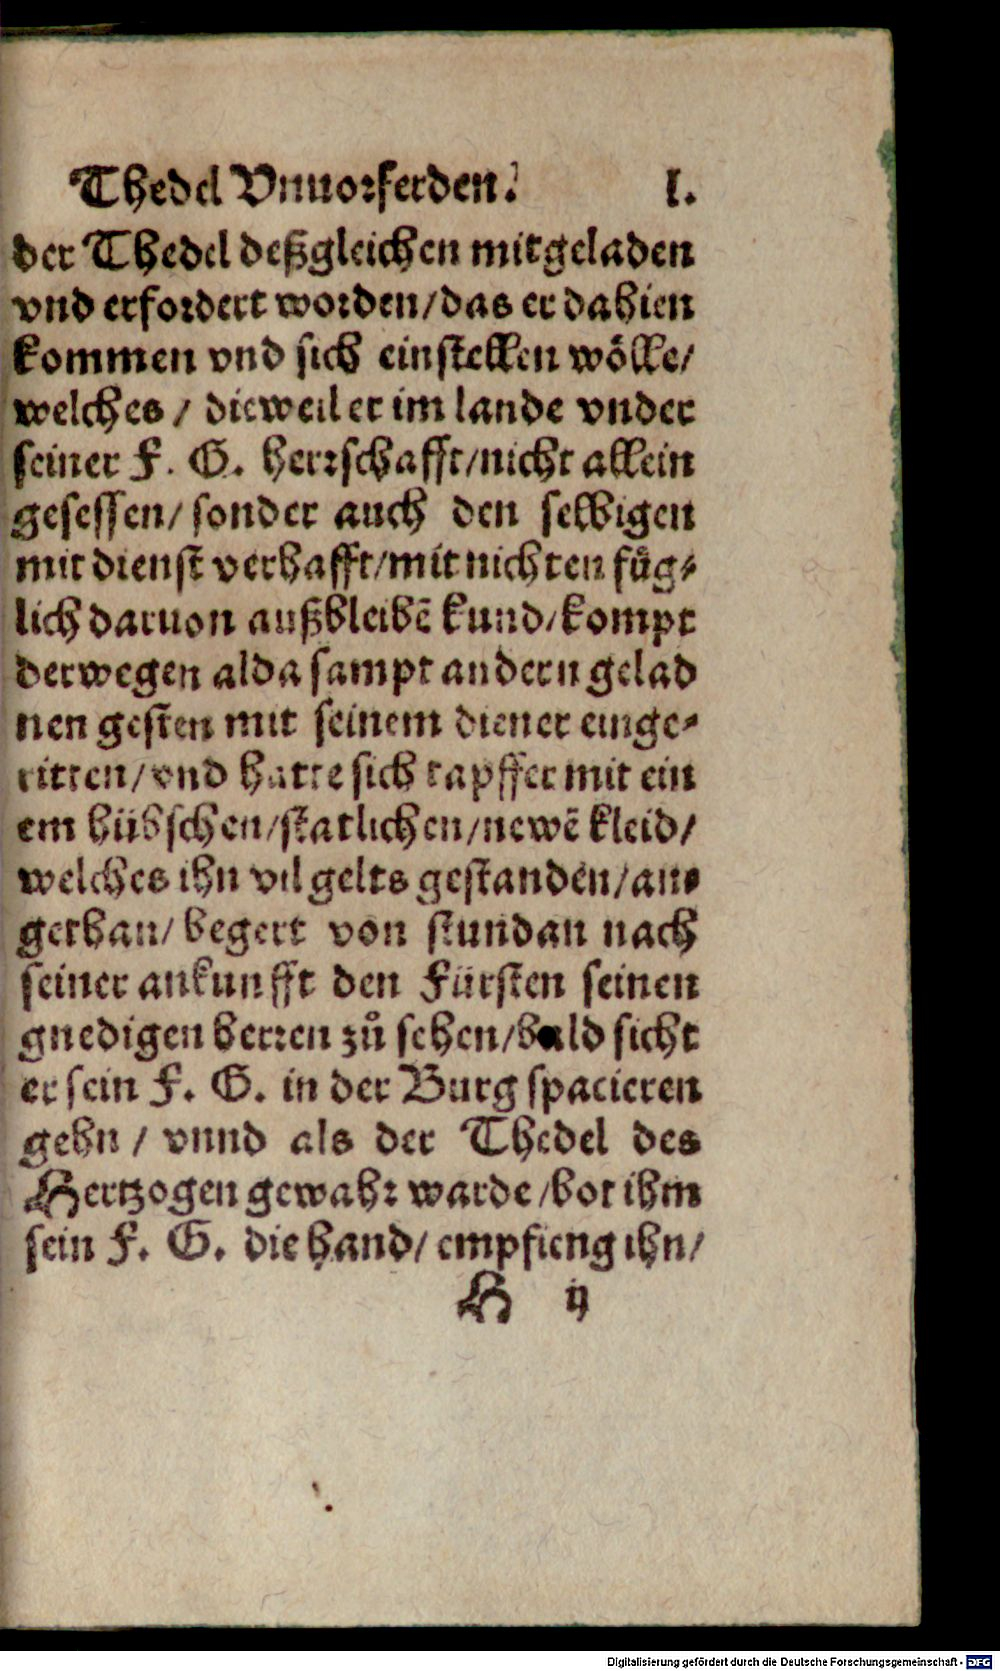 Thedel Vnuorferden. l.
der Thedel deßgleichen mitgeladen
vnd erfordert worden/das er dahien
kommen vnd sich einstellen wölle/
welches / dieweil er im lande vnder
seiner F. G. herrschafft/nicht allein
gesessen/ sonder auch den selbigen
mit dienst verhafft/mit nichten füg⸗
lich daruon außbleibẽ kund/kompt
derwegen alda sampt andern gelad
nen gesten mit seinem diener einge⸗
ritten/vnd hatte sich tapffer mit ein
em hübschen/statlichen/newẽ kleid/
welches ihn vil gelts gestanden/an⸗
gethan/ begert von stundan nach
seiner ankunfft den Fürsten seinen
gnedigen herren zů sehen/bald sicht
er sein F. G. in der Burg spacieren
gehn / vnnd als der Thedel des
Hertzogen gewahr warde/bot ihm
sein F. G. die hand/ empfieng ihn/
H ij
Digitalisierung gefördert durch die Deutsche Forschungsgemeinschaft - DFG